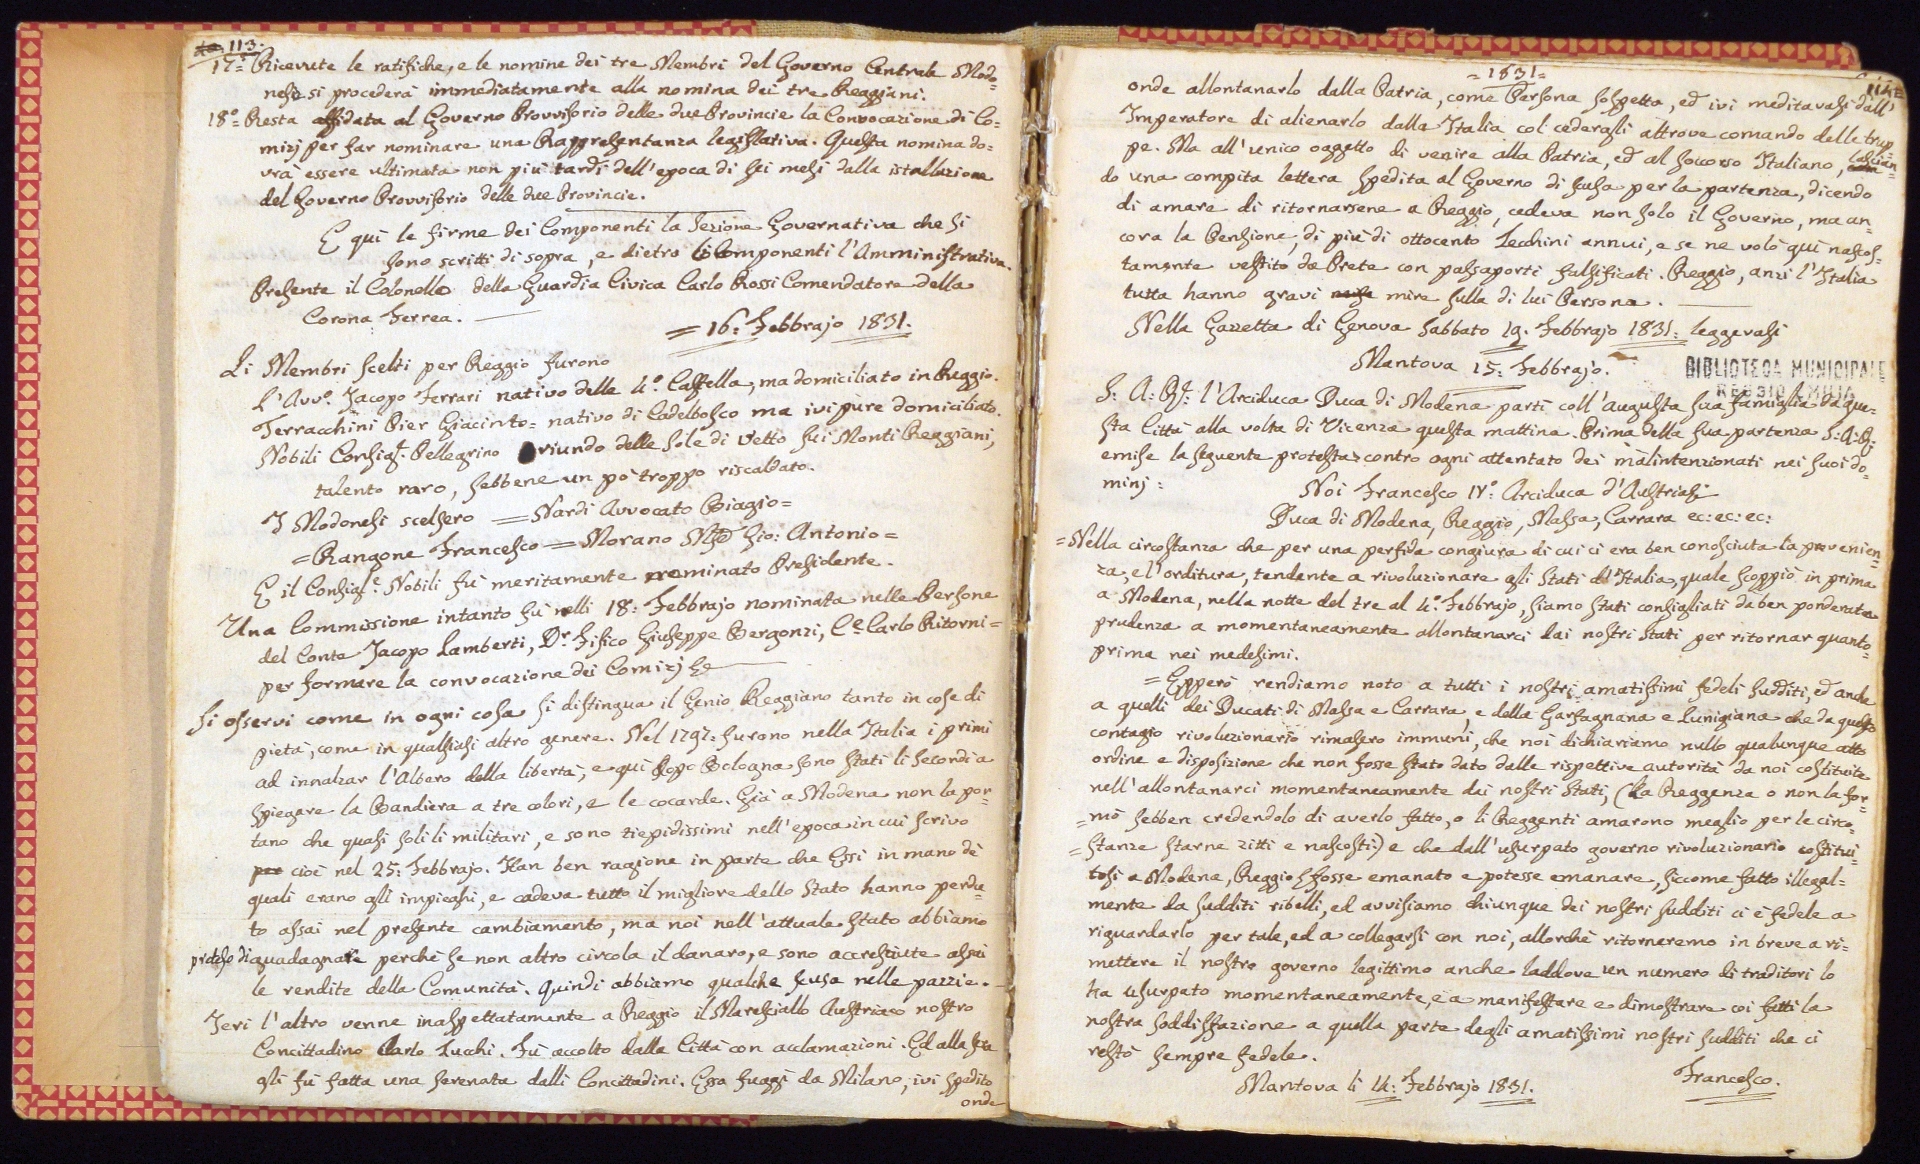 113.
17.° Ricevute le ratifiche, e le nomine dei tre Membri del Governo Centrale Modo=
nesi si procederà immediatamente alla nomina dei tre Reggiani.
18.° Resta affidata al Governo Provvisorio delle due Provincie la Convocazione di Co=
mizj per far nominare una Rappresentanza legislativa. Questa nomina do=
vrà essere ultimata non più tardi dell'epoca di sei mesi dalla istallazione
del Governo Provvisorio delle due Provincie.
E qui le firme dei Componenti la Sezione Governativa che si
sono scritti di sopra, e dietro li Componenti l'Amministrativa.
Presente il Colonello della Guardia Civica Carlo Rossi Comendatore della
Corona Ferrea.
= 16: Febbrajo 1831.
Li Membri scelti per Reggio furono
L'Avv.° Jacopo Ferrari nativo delle 4.° Castella, ma domiciliato in Reggio.
Terracchini Pier Giacinto = nativo di Cadelbosco ma ivi pure domiciliato.
Nobili Consigl.e Pellegrino oriundo delle Sole di Vetto sui Monti Reggiani,
talento raro, sebbene un pò troppo riscaldato.
I Modonesi scelsero = Nardi Avvocato Biagio =
= Rangone Francesco = Morano Gio: Antonio =
E il Consigl.e Nobili fù meritamente nominato Presidente.
Una Commissione intanto fù nelli 18: Febbrajo nominata nelle Persone
del Conte Jacopo Lamberti, D.r Fisico Giuseppe Bergonzi, C.e Carlo Ritorni =
per formare la convocazione dei Comizj
Si osservi come in ogni cosa si distingua il Genio Reggiano tanto in cose di
pietà, come in qualsiasi altro genere. Nel 1797: furono nella Italia i primi
ad innalzar l'Albero della libertà, e quì dopo Bologna sono stati li secondi a
spiegare la Bandiera a tre colori, e le cocarde. Già a Modena non la por=
tano che quasi soli li militari, e sono tiepidissimi nell'epoca in cui scrivo
cioè nel 25: Febbrajo. Han ben ragione in parte che Essi in mano dè
quali erano gli impieghi, e cadeva tutto il migliore dello Stato hanno perdu=
to assai nel presente cambiamento, ma noi nell'attuale stato abbiamo
preteso di guadagnare perchè se non altro circola il danaro, e sono accresciute assai
le rendite della Comunità. Quindi abbiamo qualche scusa nelle pazzie.
Jeri l'altro venne inaspettatamente a Reggio il Maresciallo Austriaco nostro
Concittadino Carlo Zucchi. Fù accolto dalla Città con acclamazioni. Ed alla sera
gli fù fatta una serenata dalli Concittadini. Esso fuggì da Milano, ivi spedito
onde
= 1831 =
114
onde allontanarlo dalla Patria, come Persona sospetta, ed ivi meditavasi dall'
Imperatore di alienarlo dalla Italia col cedergli altrove comando delle trup=
pe. Ma all'unico oggetto di venire alla Patria, ed al soccorso Italiano, lascian=
do una compita lettera spedita al Governo di scusa per la partenza, dicendo
di amare di ritornarsene a Reggio, cedeva non solo il Governo, ma an=
cora la Pensione, di più di ottocento Zecchini annui, e se ne volò quì nascos=
tamente vestito da Prete con passaporti falsificati. Reggio, anzi l'Italia
tutta hanno gravi mire sulla di lui Persona.
Nella Gazzetta di Genova Sabbato 19. Febbrajo 1831: leggevasi
Mantova 15: Febbrajo.
BIBLIOTECA MUNICIPALE
REGGIO EMILIA
S: A: R: l'Arciduca Duca di Modena partì coll'augusta sua famiglia da que=
sta Città alla volta di Vicenza questa mattina. Prima della sua partenza S: A: R:
emise la seguente protesta contro ogni attentato dei malintenzionati nei suoi do=
minj:
Noi Francesco IV: Arciduca d'Austria
Duca di Modena, Reggio, Massa, Carrara ec: ec: ec:
= Nella circostanza che per una perfida congiura di cui ci era ben conosciuta la provenien=
za, e l'orditura, tendente a rivoluzionare gli Stati d'Italia, quale scoppiò in prima
a Modena, nella notte del tre al 4.° Febbrajo, siamo stati consigliati da ben ponderata
prudenza a momentaneamente allontanarci dai nostri Stati per ritornar quanto
prima nei medesimi.
= Epperò rendiamo noto a tutti i nostri amatissimi fedeli sudditi, ed anche
a quelli dei Ducati di Massa e Carrara, e della Garfagnana e Lunigiana che da questo
contagio rivoluzionario rimasero immuni, che noi dichiariamo nullo qualunque atto
ordine e disposizione che non fosse stato dato dalle rispettive autorità da noi costituite
nell'allontanarci momentaneamente dai nostri Stati, (La Reggenza o non la for=
= mò sebben credendolo di averlo fatto, o li Reggenti amarono meglio per le circo=
= stanze starne zitti e nascosti) e che dall'usurpato governo rivoluzionario costitui=
tosi a Modena, Reggio fosse emanato e potesse emanare, siccome fatto illegal=
mente da sudditi ribelli, ed avvisiamo chiunque dei nostri sudditi ci è fedele a
riguardarlo per tale, ed a collegarsi con noi, allorchè ritorneremo in breve a ri=
mettere il nostro governo legittimo anche laddove un numero di traditori lo
ha usurpato momentaneamente, e a manifestare e dimostrare coi fatti la
nostra soddisfazione a quella parte degli amatissimi nostri sudditi che ci
restò sempre fedele.
Mantova li 14: Febbrajo 1831.
Francesco.